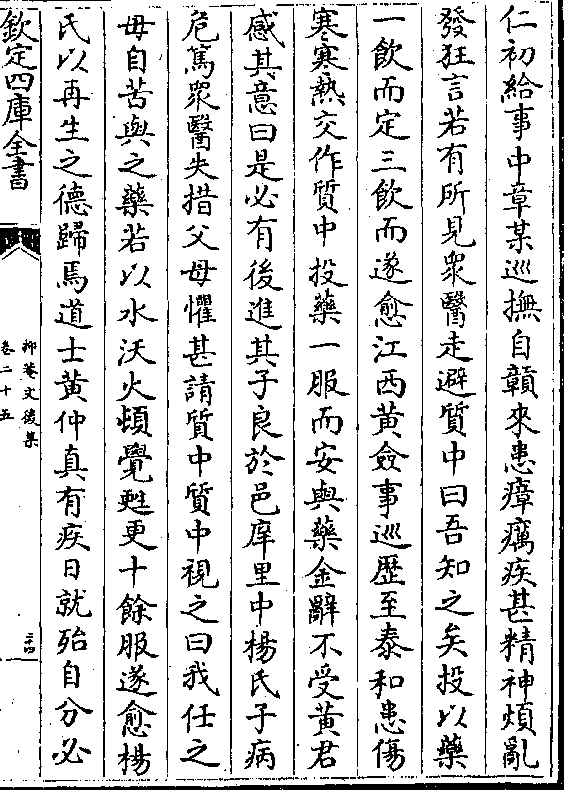 仁初給事中章某巡撫自贛來患瘴癘疾甚精神煩亂
發狂言若有所見衆醫走避質中曰吾知之矣投以藥
一飲而定三飲而遂愈江西黄僉事巡歴至泰和患傷
寒寒熱交作質中投藥一服而安與藥金辭不受黄君
感其意曰是必有後進其子良於邑庠里中楊氏子病
危篤衆醫失措父母懼甚請質中質中視之曰我任之
毋自苦與之藥若以水沃火頓覺甦更十餘服遂愈楊
氏以再生之德歸焉道士黄仲真有疾日就殆自分必
欽定四庫全書
抑菴文後集
卷二十五
三四